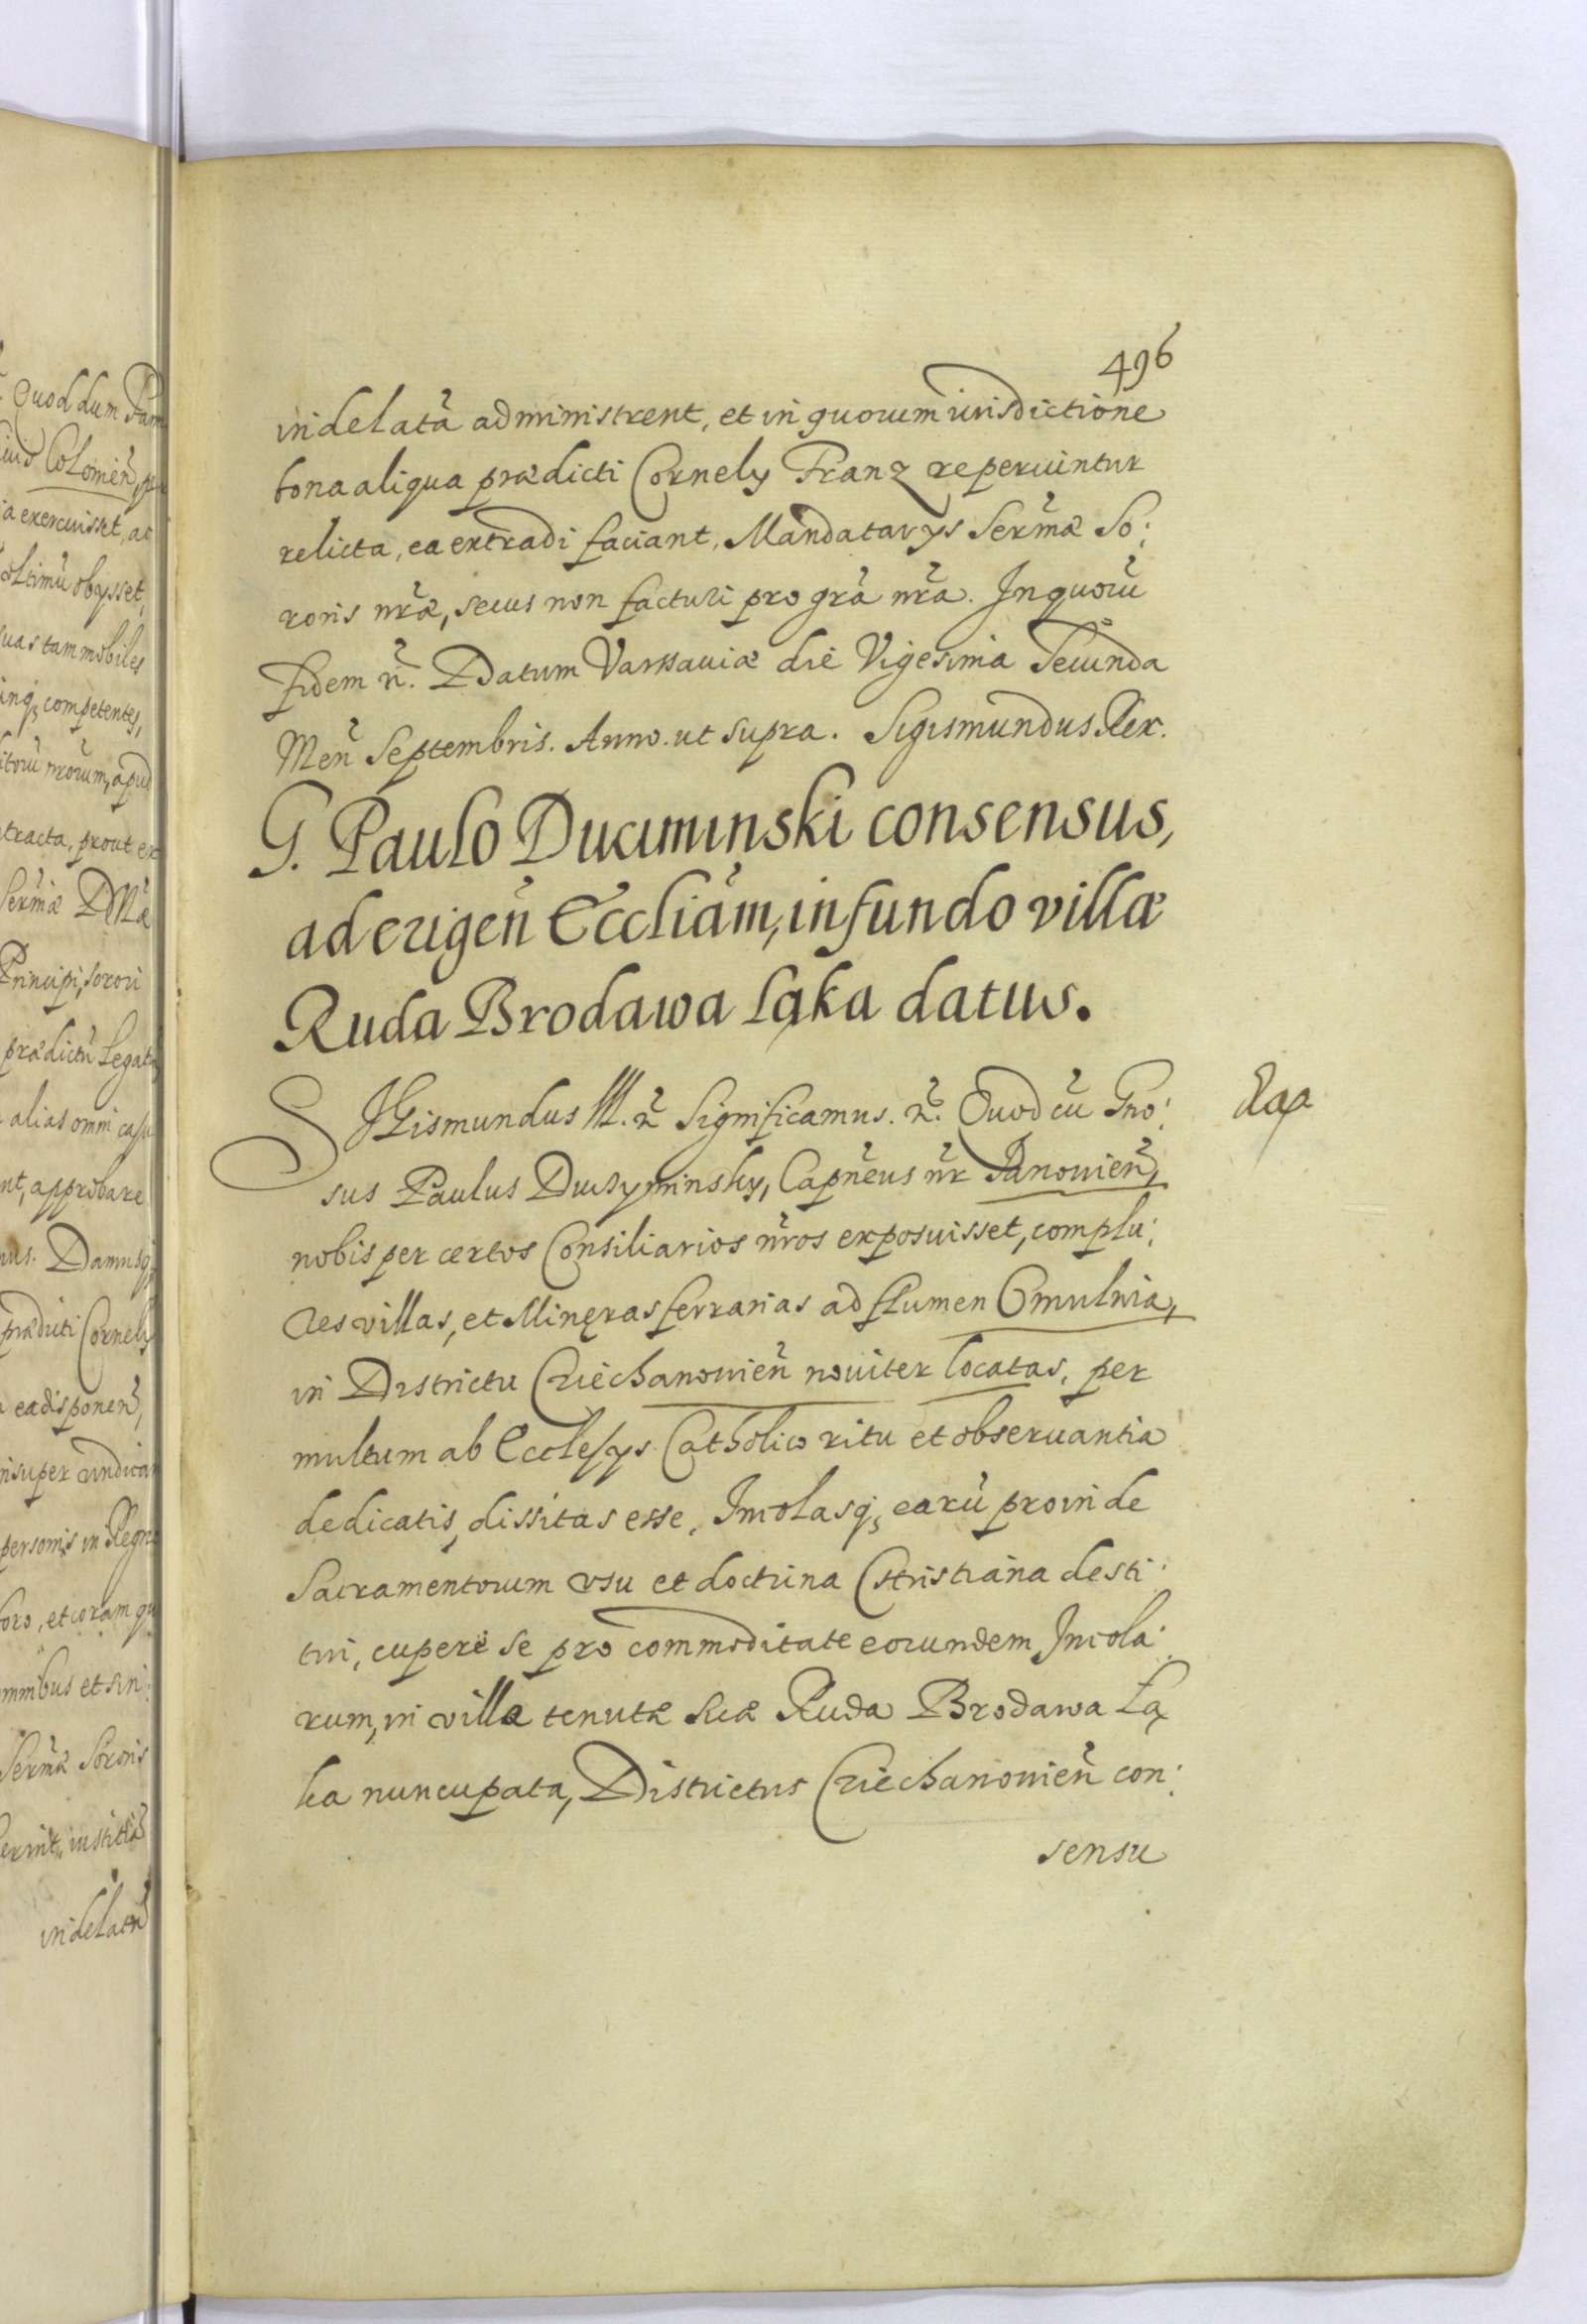 496
indelatã administrent, et in quorum iurisdictione
bona aliqua prædicti Cornely Franz reperiuntur
relicta, ea extradi faciant, Mandatarys Sermæ So:
roris nræ, secus non facturi pro gra nra. In quorũ
fidem &. Datum Varssauiæ die Vigesima Secunda
Men Septembris. Anno. ut supra. Sigismundus Rex.
G. Paulo Duciminski consensus,
ad erigen Eccliam, in fundo villæ
Ruda Brodawa Ląka datus.
SIGismundus III. & Significamus. &. Quod cũ Gno:
sus Paulus Duczyminsky, Capneus nr Panouien,
nobis per certos Consiliarios nros exposuisset, complu:
res villas, et Mineras ferrarias ad flumen Omulvia,
in Districtu Cziechanouien nouiter locatas, per
multum ab Ecclesys Catholico ritu et obseruantia
dedicatis, dissitas esse, Incolasq, earũ proinde
Sacramentorum vsu et doctrina Christiana desti:
tui, cupere se pro commoditate eorundem Incola:
rum, in villa tenutæ suæ Ruda Brodawa Łą
ka nuncupata, Districtus Cziechanouien con:
sensu
Quod dum
Colomen,
a exercuisset, ac
vltimũ obysset,
suas tam mobiles
competentes,
apud
tracta, prout ex
Sermæ DNæ
Principi, sorori
prædictũ
alias omni casu
nt, approbare
nus. Damusq,
prædicti Cornely
ea disponen,
insuper vndicun
personis in Regno
foro, et coram qu
omnibus et sin:
Sermæ Sororis
iustitiã
indelatã